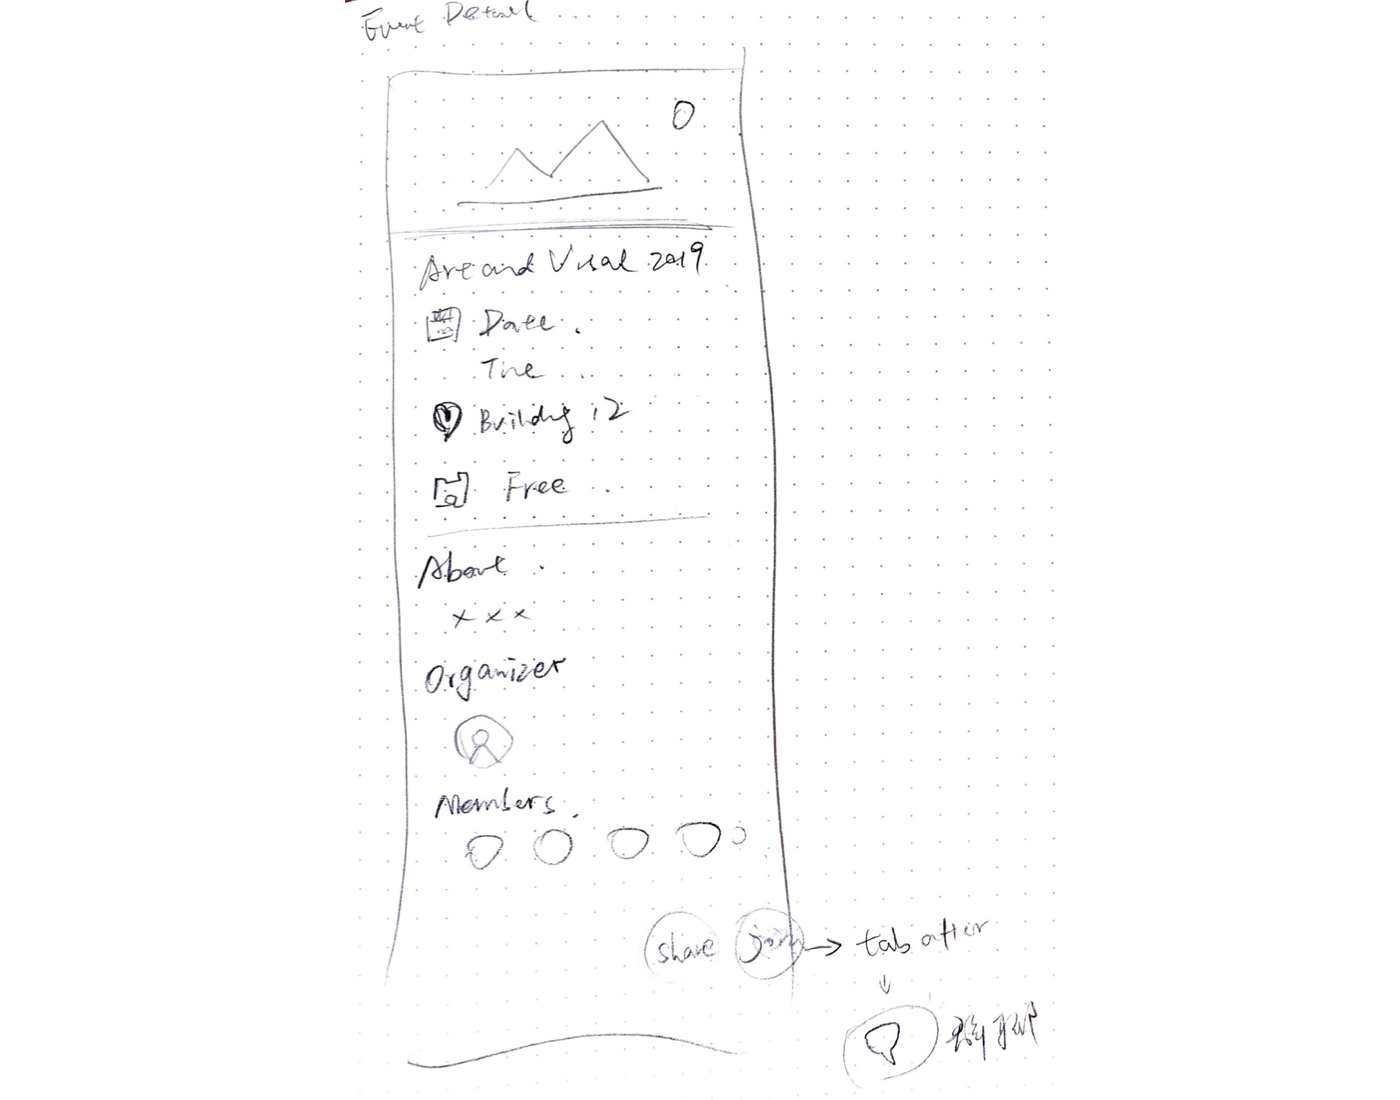 Event Detail
Art and Visal 2019
Date
Time
Building 12
Free
About
x x x
Organizer
Members
share join → tab after